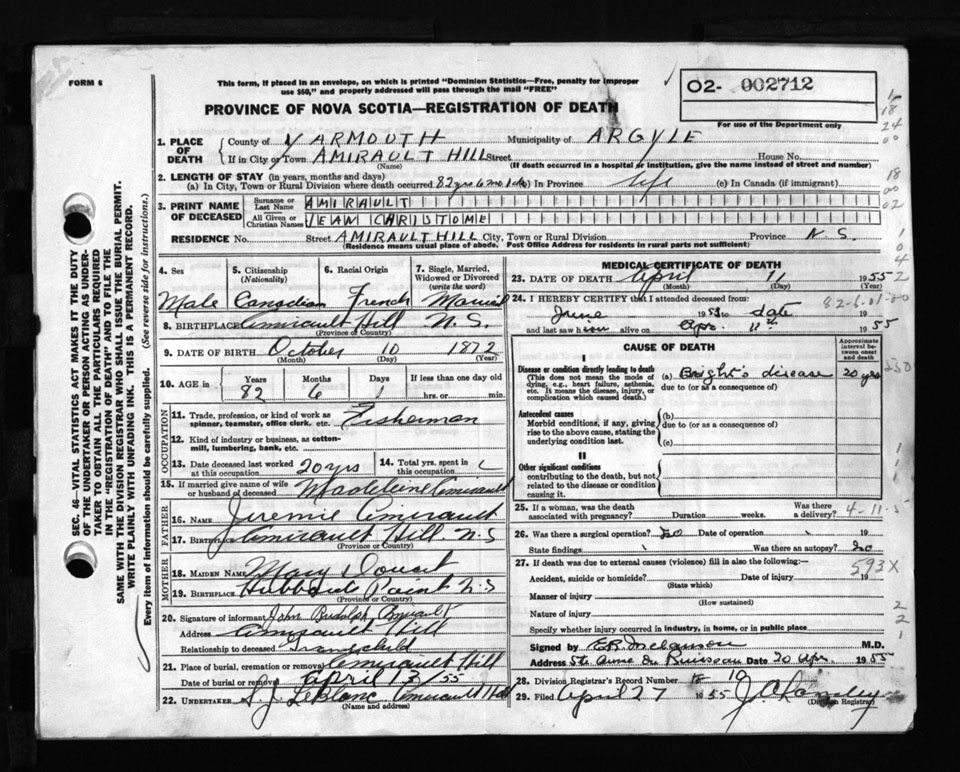 FORM 6
This form, if placed in an envelope, on which is printed "Dominion Statistics—Free, penalty for improper
use $50," and properly addressed will pass through the mail "FREE"
PROVINCE OF NOVA SCOTIA—REGISTRATION OF DEATH
O2- 002712
For use of the Department only
1. PLACE OF DEATH
County of YARMOUTH Municipality of ARGYLE
If in City or Town AMIRAULT HILL Street House No.
(Name) (If death occurred in a hospital or institution, give the name instead of street and number)
2. LENGTH OF STAY (in years, months and days)
(a) In City, Town or Rural Division where death occurred 82 yrs 6 mo 1 (b) In Province life (c) In Canada (if immigrant)
3. PRINT NAME OF DECEASED
Surname or Last Name AMIRAULT
All Given or Christian Names JEAN CHRISTOME
RESIDENCE No. Street AMIRAULT HILL City, Town or Rural Division Province N.S.
(Residence means usual place of abode. Post Office Address for residents in rural parts not sufficient)
4. Sex
5. Citizenship (Nationality)
6. Racial Origin
7. Single, Married, Widowed or Divorced (write the word)
Male Canadian French Married
8. BIRTHPLACE Amirault Hill N.S.
(Province or Country)
9. DATE OF BIRTH October 10 1872
(Month) (Day) (Year)
10. AGE in Years Months Days If less than one day old
82 6 1 hrs. or min.
OCCUPATION
11. Trade, profession, or kind of work as spinner, teamster, office clerk, etc. Fisherman
12. Kind of industry or business, as cotton-mill, lumbering, bank, etc.
13. Date deceased last worked at this occupation 20 yrs
14. Total yrs. spent in this occupation
15. If married give name of wife or husband of deceased Madeleine Amirault
FATHER
16. NAME Jeremie Amirault
17. BIRTHPLACE Amirault Hill N.S
(Province or Country)
MOTHER
18. MAIDEN NAME Mary Doucet
19. BIRTHPLACE Hubbard Point N.S
(Province or Country)
20. Signature of informant John Rudolph Amirault
Address Amirault Hill
Relationship to deceased Grandchild
21. Place of burial, cremation or removal Amirault Hill
Date of burial or removal April 13/55
22. UNDERTAKER S. J. LeBlanc Amirault Hill
(Name and address)
MEDICAL CERTIFICATE OF DEATH
23. DATE OF DEATH April 11 1955
(Month) (Day) (Year)
24. I HEREBY CERTIFY that I attended deceased from:
June 1953 to date
and last saw him alive on Apr. 11th 1955
82-6-01-00
CAUSE OF DEATH
Approximate interval between onset and death
I
Disease or condition directly leading to death
(This does not mean the mode of dying, e.g., heart failure, asthenia, etc. It means the disease, injury, or complication which caused death.)
(a) Bright's disease 20 yrs
due to (or as a consequence of)
Antecedent causes
Morbid conditions, if any, giving rise to the above cause, stating the underlying condition last.
(b)
due to (or as a consequence of)
(c)
II
Other significant conditions
contributing to the death, but not related to the disease or condition causing it.
25. If a woman, was the death associated with pregnancy? Duration weeks. Was there a delivery?
4-11-5
26. Was there a surgical operation? No Date of operation 19
State findings Was there an autopsy? No
27. If death was due to external causes (violence) fill in also the following:
593X
Accident, suicide or homicide? Date of injury 19
(State which)
Manner of injury
(How sustained)
Nature of injury
Specify whether injury occurred in industry, in home, or in public place
Signed by M.D.
Address Ste Anne Du Ruisseau Date 20 Apr. 1955
28. Division Registrar's Record Number 10
29. Filed April 27 1955
(Division Registrar)
SEC. 46—VITAL STATISTICS ACT MAKES IT THE DUTY
OF THE UNDERTAKER OR PERSON ACTING AS UNDER-
TAKER TO OBTAIN ALL THE PARTICULARS REQUIRED
IN THE "REGISTRATION OF DEATH" AND TO FILE THE
SAME WITH THE DIVISION REGISTRAR WHO SHALL ISSUE THE BURIAL PERMIT.
WRITE PLAINLY WITH UNFADING INK. THIS IS A PERMANENT RECORD.
Every item of information should be carefully supplied. (See reverse side for instructions.)